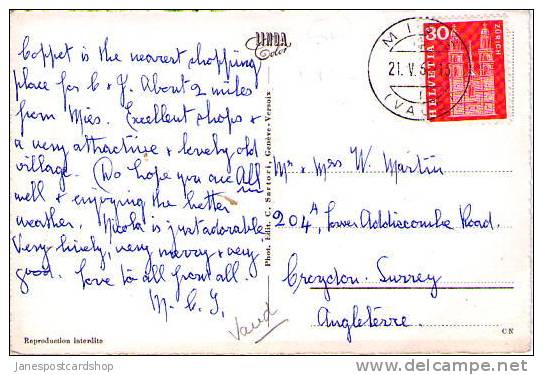 LINDA
Color
Coppet is the nearest shopping
place for C & J. About 2 miles
from Mies. Excellent shops &
a very attractive & lovely old
village. Do hope you are All
well & enjoying the better
weather. Nicola is just adorable
Very lively, very merry & very
good. Love to all from all.
M. C. J.
Vaud
Reproduction interdite
Phot. Edit. C. Sartori, Genève-Versoix
30
HELVETIA
ZÜRICH
21. V. 6
(VA
Mr & Mrs W. Martin
204A, Lower Addiscombe Road.
Croydon. Surrey
Angleterre.
CN
janespostcardshop
http://www.delcampe.net